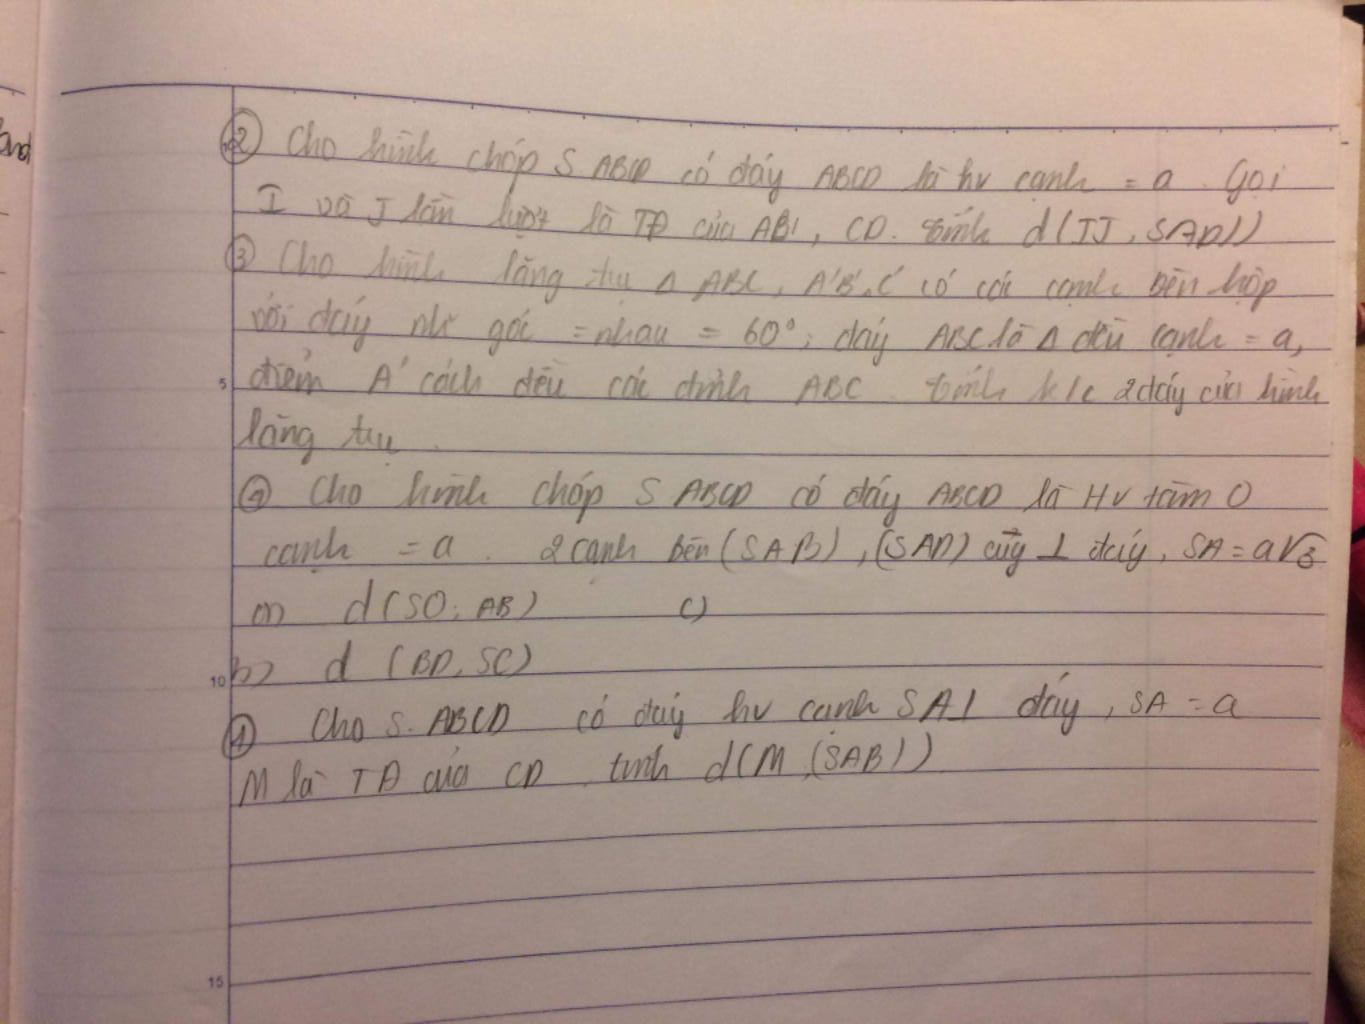 ② Cho hình chóp S ABCD có đáy ABCD là hv cạnh = a. Gọi
I và J lần lượt là TĐ của AB, CD. tính d(IJ, SAD))
③ Cho hình lăng trụ Δ ABC, A'B',C' có các cạnh bên hợp
với đáy góc = nhau = 60°, đáy ABC là Δ đều cạnh = a,
điểm A' cách đều các đỉnh ABC. tính k/c 2 đáy của hình
lăng trụ.
④ Cho hình chóp S ABCD có đáy ABCD là Hv tâm O
cạnh = a. 2 cạnh bên (SAB), (SAD) cùg ⊥ đáy, SA = a√3
a) d(SO; AB) c)
b) d (BD, SC)
① Cho S.ABCD có đáy hv cạnh SA⊥ đáy, SA = a
M là TĐ của CD. tính d(M,(SAB))
5
10
15